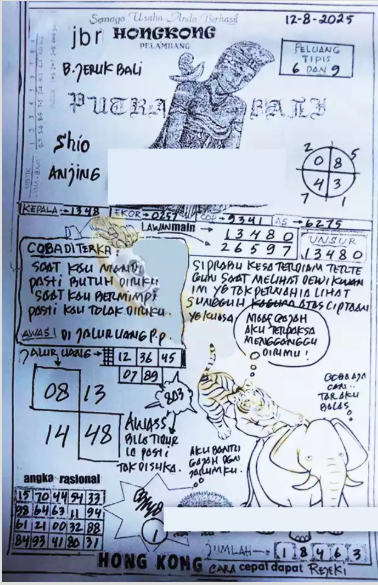 Semoga Usaha Anda Berhasil
12-8-2025
jbr HONGKONG
PELAMBANG
PELUANG
TIPIS
6 DAN 9
B. JERUK BALI
PUTRA BALI
Shio
ANJING
2 5
0 8
4 3
7 1
KEPALA → 1348 EKOR → 0257 COP → 9341 AS → 6275
LAWAN main
13480
26597
UNSUR
13480
COBA DITERKA
SAAT KAU MANDI
PASTI BUTUH DIRIKU
SAAT KAU BERMIMPI
PASTI KAU TOLAK DIRIKU.
AWAS! DI JALUR UANG P.P.
SI PRABU KESA TERDIAM
SAAT MELIHAT DEWI KWAN
IM YG TAK PERNAH IA LIHAT
SUNGGUH ATAS CIPTAAN
YG KUASA
MAAF GAJAH
AKU TERPAKSA
MENGGANGGU
DIRIMU!
JALUR UANG →
12 36 45
07 89
803
08 13
14 48
AWASS
BILA TIDUR
IA PASTI
TAK DISUKA.
COBA AJA
TARAKU
BALAS
AKU BANTU
GAJAH DGN
JARUMKU.
angka rasional
15 70 44 54 33
98 64 63 11 94
61 21 00 32 88
84 93 41 80 31
1
JUMLAH → 1 8 4 6 3
HONG KONG CARA cepat dapat REJEKI